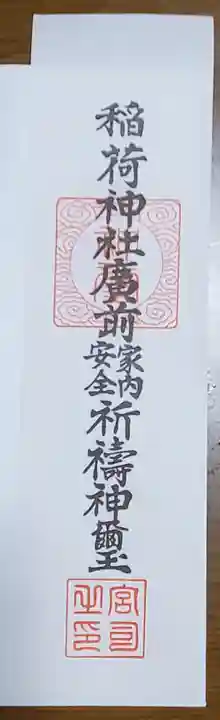 稲荷神社廣前家内安全祈禱神璽
宮司之印